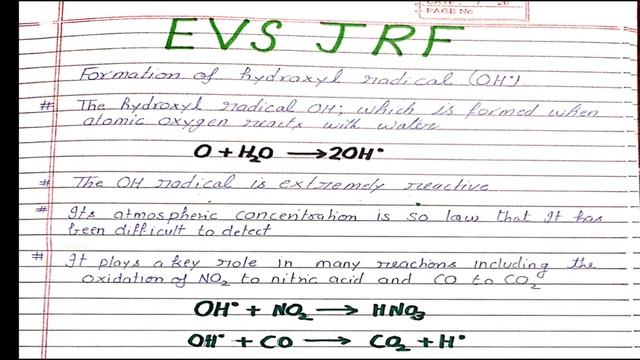 PAGE No
EVS JRF
Formation of hydroxyl radical (OH•)
# The hydroxyl radical OH•, which is formed when
atomic oxygen reacts with water
O + H₂O → 2OH•
# The OH radical is extremely reactive
# Its atmospheric concentration is so law that It has
been difficult to detect
# It plays a key role in many reachons including the
oxidation of NO₂ to nitric acid and CO to CO₂
OH• + NO₂ → HNO₃
OH• + CO → CO₂ + H•